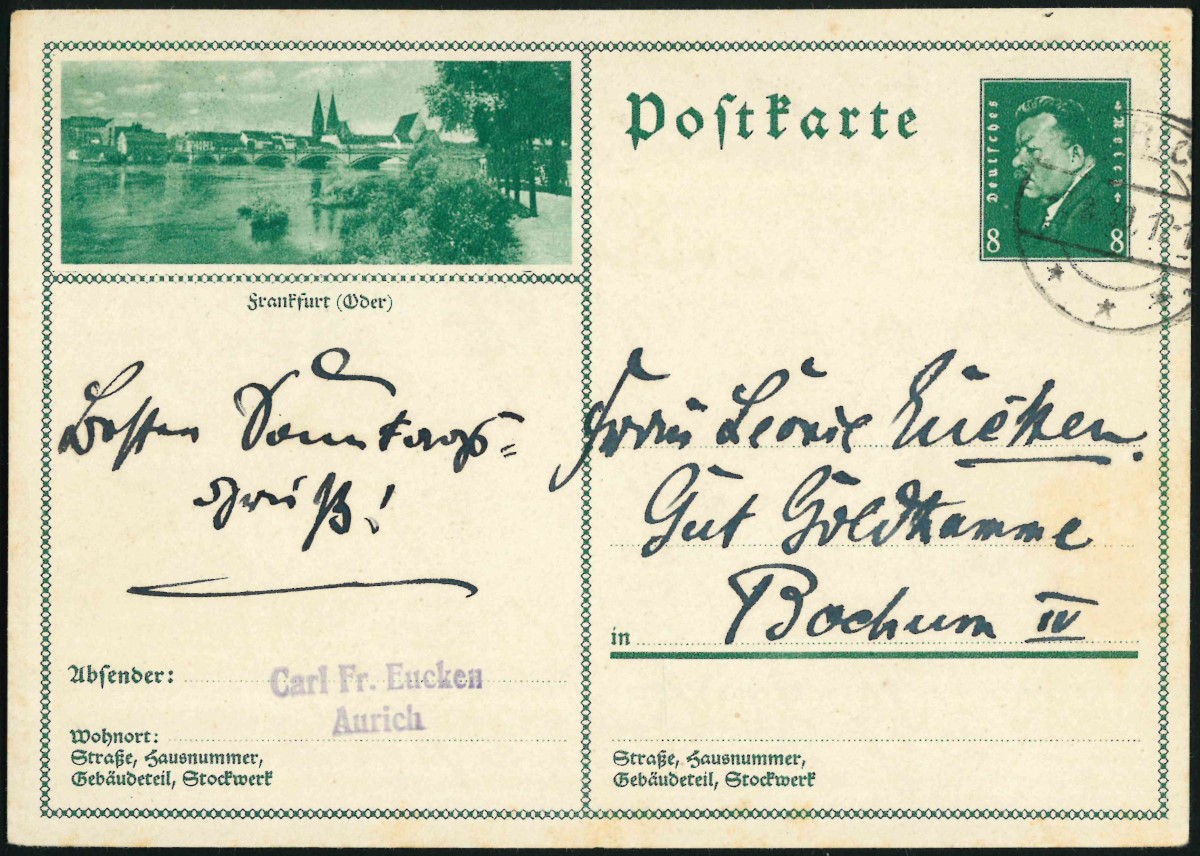 Postkarte
Deutsches Reich
8 8
Frankfurt (Oder)
Besten Sonntags=
gruß!
Frau Leonie Eucken.
Gut Goldhamme
in Bochum IV
Absender:
Carl Fr. Eucken
Aurich
Wohnort:
Straße, Hausnummer,
Gebäudeteil, Stockwerk
Straße, Hausnummer,
Gebäudeteil, Stockwerk